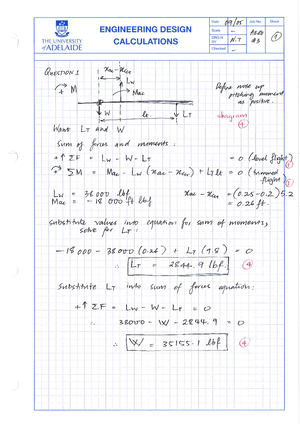 THE UNIVERSITY
of ADELAIDE
ENGINEERING DESIGN
CALCULATIONS
Date
Job No.
Sheet
Scale
-
DRG.N
BY
N.T
#3
Checked
-
QUESTION 1
xac - xcg
Lw
+ M
Mac
W
lt
LT
Define nose up
pitching moment
as positive.
diagram
④
Want LT and W
Sum of forces and moments:
+↑ ΣF = Lw - W - LT = 0 (level flight) ①
+ ΣM = Mac - Lw (xac - xcg) + LT lt = 0 (trimmed flight) ①
Lw = 38000 lbf
xac - xcg = (0.25-0.2)5.2
Mac = -18 000 ft lbf
= 0.26 ft.
substitute values into equation for sum of moments,
solve for LT:
-18000 - 38000 (0.26) + LT (9.8) = 0
∴ LT = 2844.9 lbf. ④
Substitute LT into sum of forces equation:
+↑ ΣF = Lw - W - LT = 0
∴ 38000 - W - 2844.9 = 0
∴ W = 35155.1 lbf ④